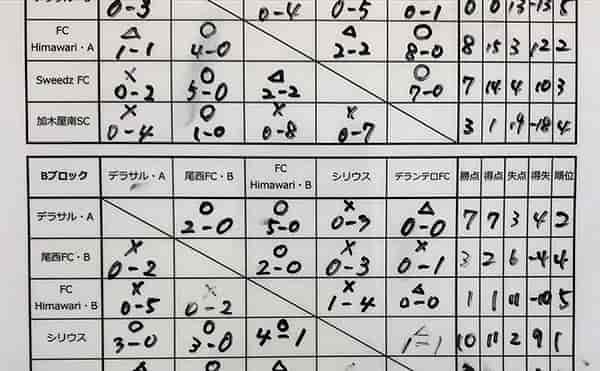 0-3 0-4 0-5 0-1 0 0 13 -13 5
FC Himawari・A △ 1-1 ○ 4-0 △ 2-2 ○ 8-0 8 15 3 12 2
Sweedz FC × 0-2 ○ 5-0 △ 2-2 ○ 7-0 7 14 4 10 3
加木屋南SC × 0-4 ○ 1-0 × 0-8 × 0-7 3 1 19 -18 4
Bブロック デラサル・A 尾西FC・B FC Himawari・B シリウス テランテロFC 勝点 得点 失点 得失 順位
デラサル・A ○ 2-0 ○ 5-0 × 0-3 △ 0-0 7 7 3 4 2
尾西FC・B × 0-2 ○ 2-0 × 0-3 × 0-1 3 2 6 -4 4
FC Himawari・B × 0-5 × 0-2 × 1-4 △ 0-0 1 1 11 -10 5
シリウス ○ 3-0 ○ 3-0 ○ 4-1 △ 1-1 10 11 2 9 1